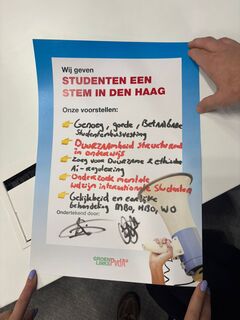 Wij geven
STUDENTEN EEN
STEM IN DEN HAAG
Onze voorstellen:
Genoeg, goede, Betaalbare
Studentenhuisvesting
DUURZAAMheid structureel
in onderwijs
Zorg voor Duurzame & ethische
Ai-regulering
Onderzoek mentale
welzijn internationale studenten
Gelijkheid en eerlijke
behandeling MBO, HBO, WO
Ondertekend door:
GROEN
LINKS
PvdA